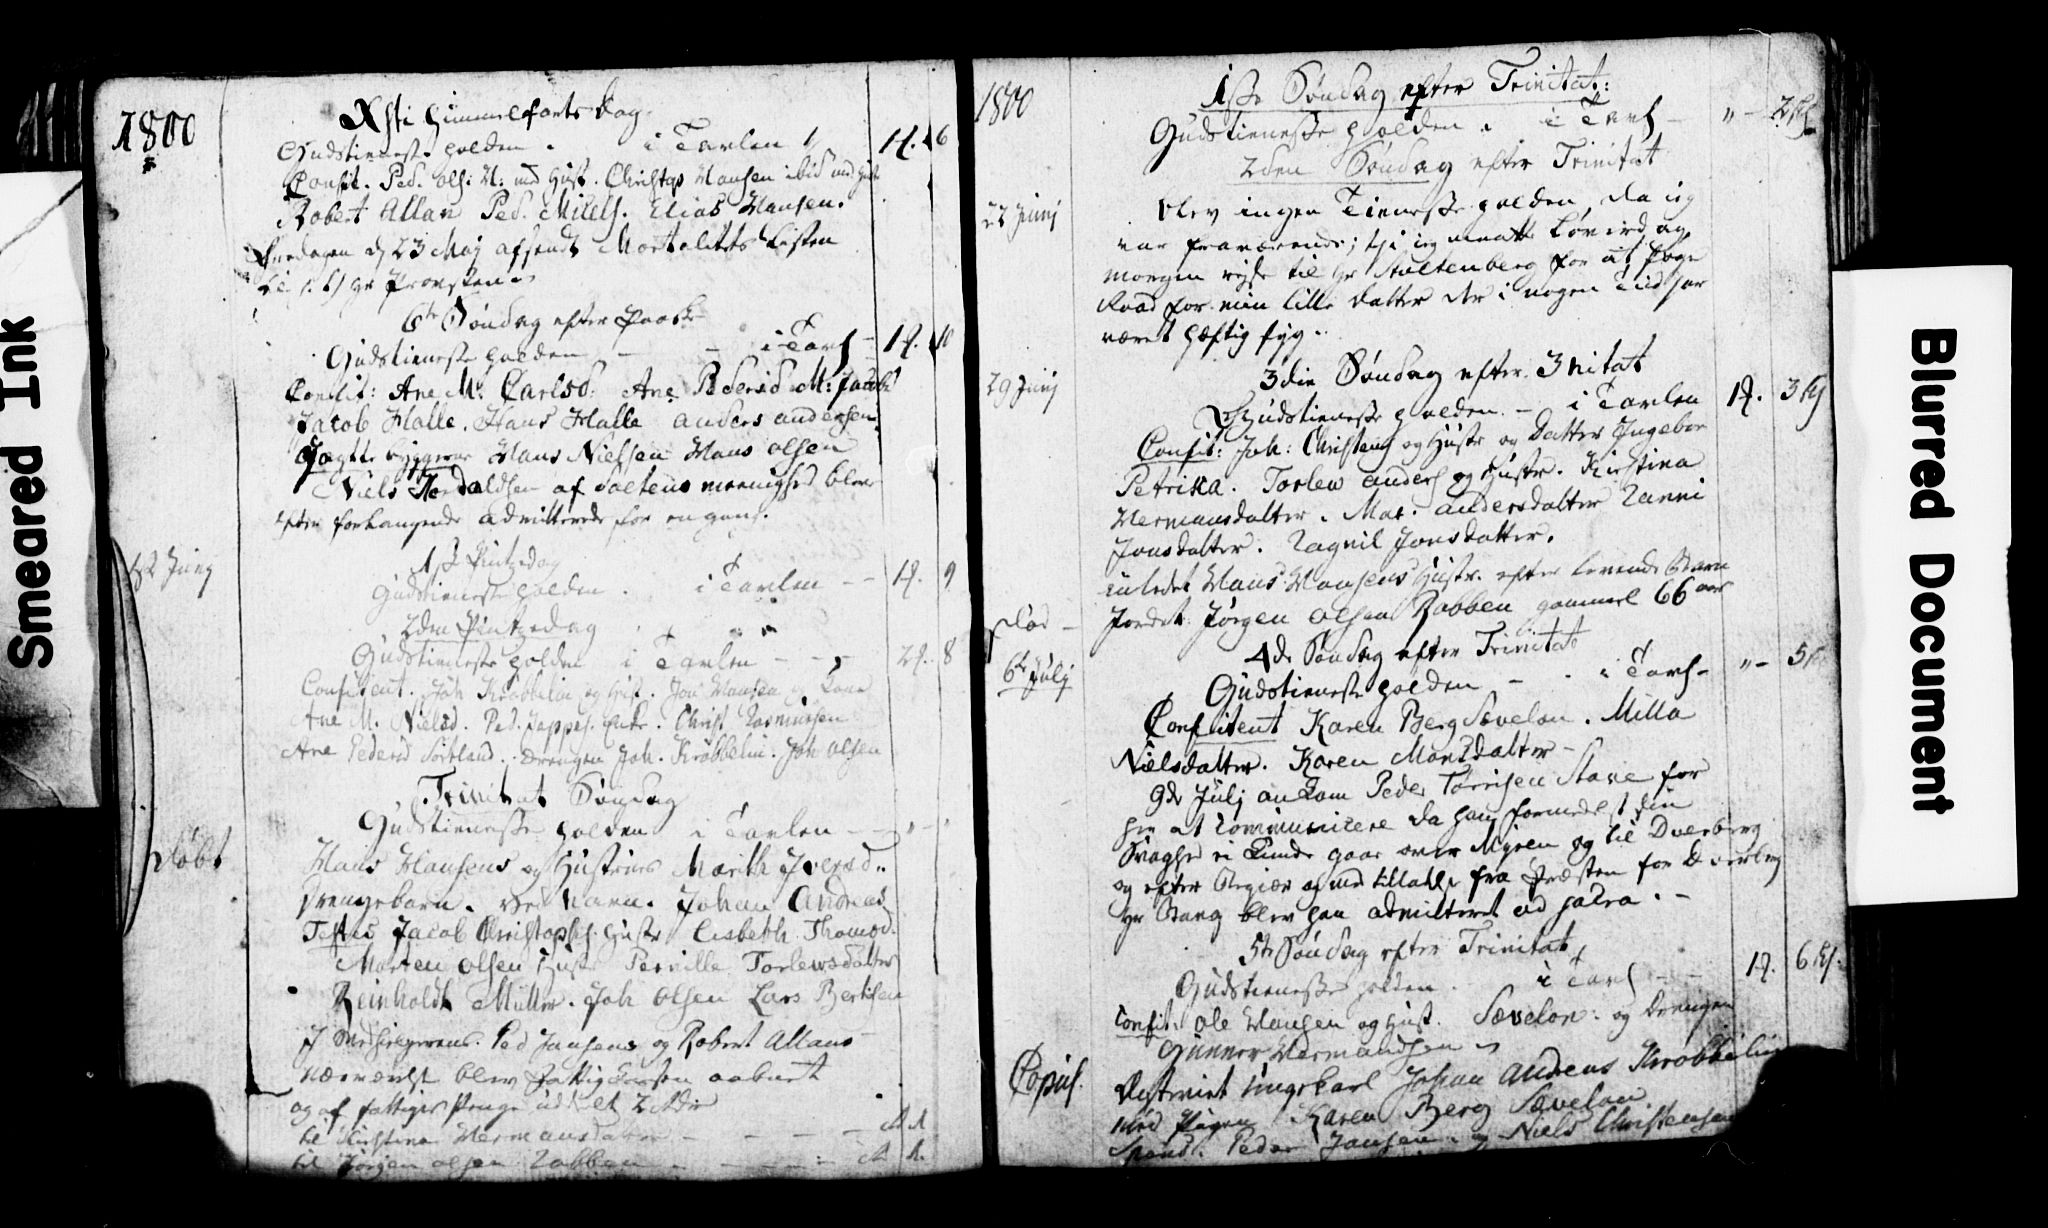 Smeared Ink
1800
Xsti Himmelfarts Dag.
Gudstieneste holden . i Tarlen 1 . 6
Confit. Ped. Ols: M: med Hust. Christop Hansen ibid med
Robert Allan Ped. Michels. Elias Hansen.
23 Maj afsendt Mortalitets Listen
til Hr Provsten
6te Søndag efter Paaske
Gudstieneste holden - - i Tars 10
Confit: Ane M. Carlsd. Ane Pedersd M: Jacobs
Jacob Halle. Hans Halle Anders Andersen
Jægtebyggerne Hans Nielsen Hans Olsen
Niels af Saltens Meenighed blev
efter Forlangende admitterede for en gang.
1st Pintzedag
1st Junij
Gudstieneste holden . i Tarlen - - 9
2den Pintzedag
Gudstieneste holden i Tarlen - - - 8
Confitent. Joh Krøbbelin og Hust. Jon Hansen og Kone
Ane M. Nielsd. Ped. Jeppes. Enke. Christ Rasmussen
Ane Pedersd Sortland. Drengen Joh. Krøbbelin. Joh Olsen
Trinitat Søndag
Gudstieneste holden i Tarlen - -
Døbt
Hans Hansens og Hustrues Marith Iversd.
Drengebarn. ved Navn. Johan Andreas
Testes Jacob Christophs. Hustr Lisbeth Thomsd.
Morten Olsen Hustr Pernille Torlewsdatter
Reinholdt Müller. Joh Olsen Lars Bertelsen
I Medhielpernes Ped Jansens og Robert Allans
Nærværelse blev aabnet
og af Fattiges Penge uddelt 2
til Kirstina Hermansdatter - - - -
til Jørgen Olsen Robben - - - -
1800
1ste Søndag efter Trinitat:
Gudstieneste holden . i Tars - " -
2den Søndag efter Trinitat
22 Junij
blev ingen Tieneste holden, da jeg
var fraværende; thi jeg maatte Løverdag
Morgen rejse til Hr Stoltenberg for at søge
Raad for min lille Datter der i nogen Tiid har
været hæftig syg.
3die Søndag efter 3nitat
29 Junij
Gudstieneste holden. - i Tarlen 3
Confit: Joh: Christens og Hustr og Datter Ingebor
Petrika. Torlew Anders og Hustr. Kirstina
Hermansdatter. Mar. Andersdatter Ranni
Jonsdatter. Ragnil Jonsdatter.
indledet Hans Hansens Hustr. efter levende Barn
Jordet Jørgen Olsen Robben gammel 66 aar
4de Søndag efter Trinitat
6te Julij
Gudstieneste holden - . i Tars - " - 5
Confitent Karen Berg Sævelon. Milla
Nielsdatter. Karen Monsdatter -
9de Julij ankom Peder Tørrisen Stave for
her at communicere da han formedelst sin
Svaghed ei kunde gaae over Myren og til Dverberg
og efter Begiær og med tilladelse fra Præsten for Dverberg
Hr Bang blev han admitteret ad sacra. -
5te Søndag efter Trinitat
Gudstieneste holden . i Tars - - 6
Confit: Ole Hansen og Hust. Sævelon. og Drengen
Gunner Hermandsen
Copul.
Ungekarl Johan Andreas Krøbbelin
med Pigen Karen Berg Sævelon
Spons. Peder Jansen. og Niels Christensen
Blurred Document